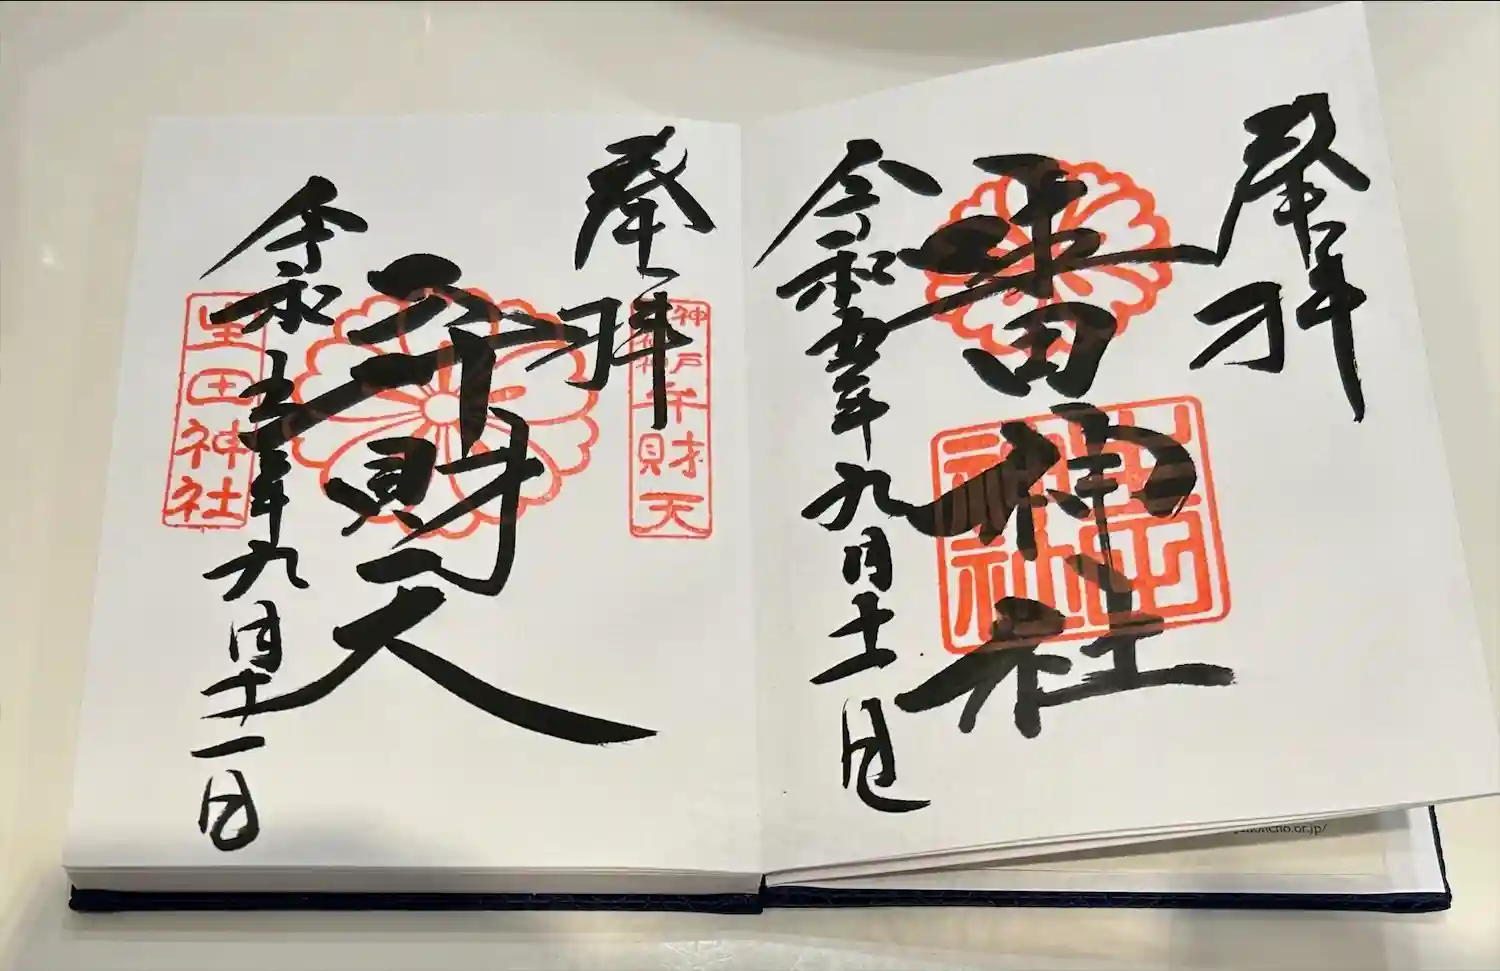 奉拝
生田神社
生田神社
令和五年九月十一日
奉拝
神戸弁財天
弁財天
令和五年九月十一日
生田神社